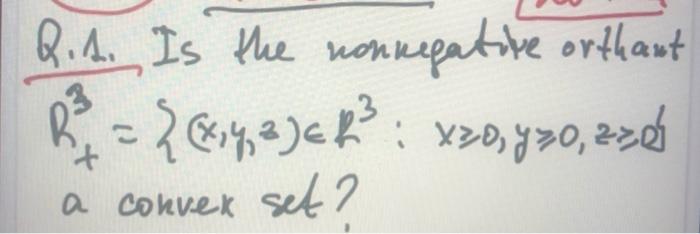 Q.1. Is the nonnegative orthant
R³₊ = {(x,y,z)∈R³: x≥0, y≥0, z≥0}
a convex set?